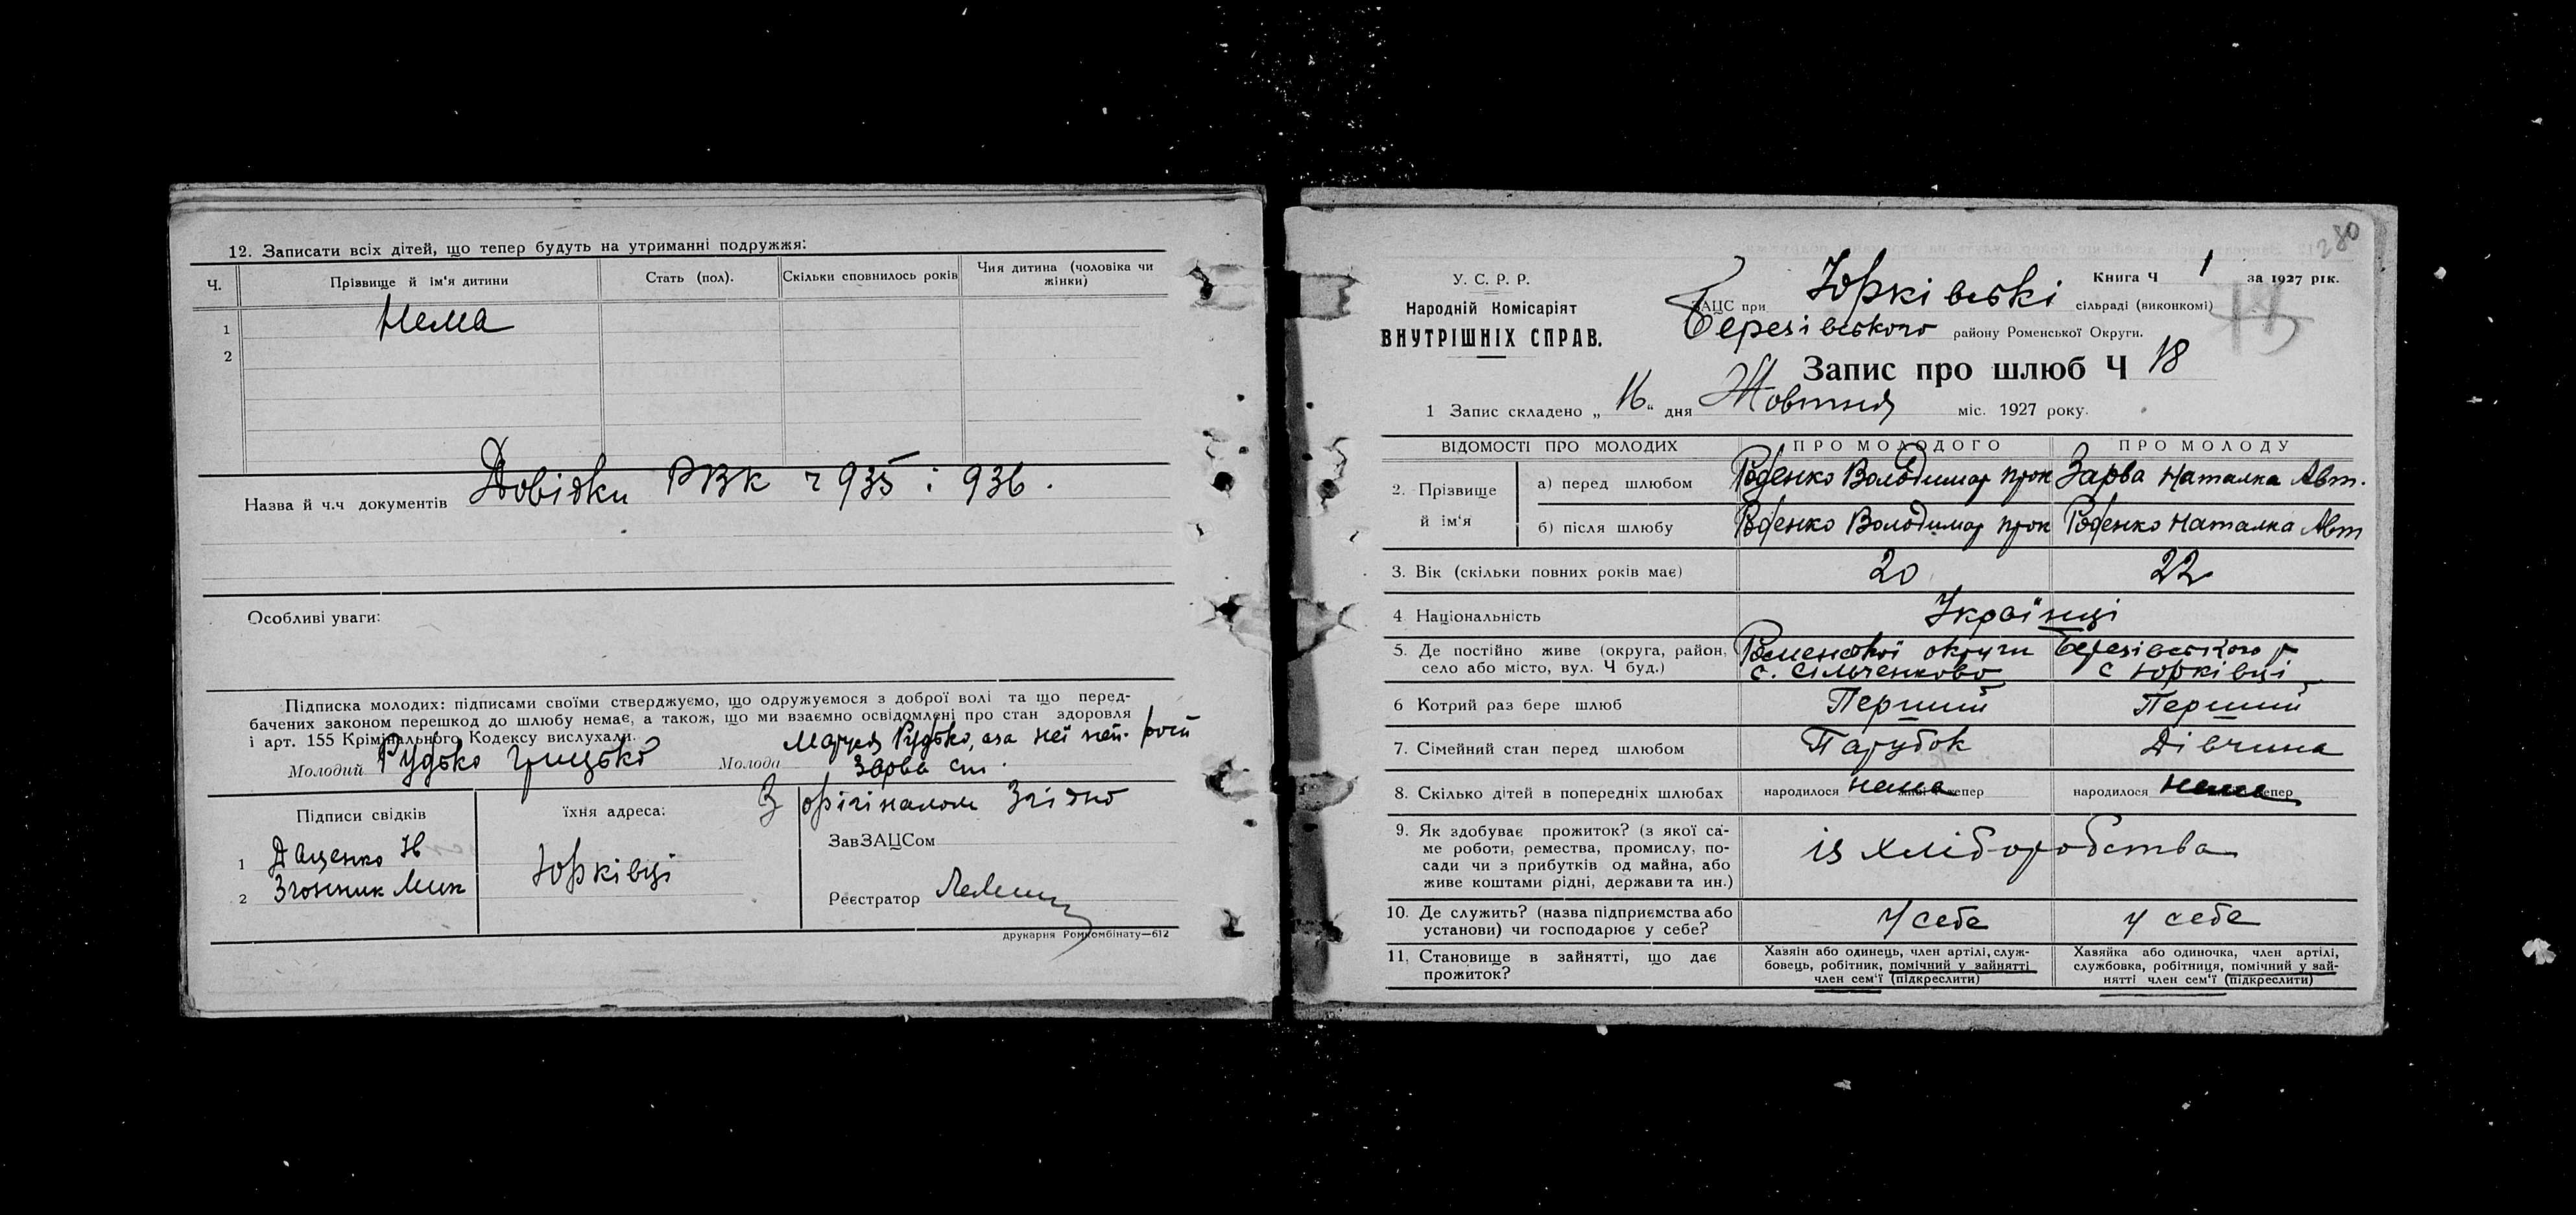 12. Записати всіх дітей, що тепер будуть на утриманні подружжя:
Ч.
Прізвище й ім'я дитини
Стать (пол).
Скільки сповнилось років
Чия дитина (чоловіка чи
жінки)
1
Нема
2
Назва й ч.ч документів Довідки РВК ч 935 і 936.
Особливі уваги:
Підписка молодих: підписами своїми стверджуємо, що одружуємося з доброї волі та що перед-
бачених законом перешкод до шлюбу немає, а також, що ми взаємно освідомлені про стан здоровля
і арт. 155 Крімінального Кодексу вислухали.
Молодий Рудько Грицько
Молода Рудько, за неї неп.
Зарва
З орігіналом Згідно
Підписи свідків
їхня адреса:
ЗавЗАЦСом
1 Даценко Н
Юрківці
2 Згонник Мик
Реєстратор
друкарня Ромкомбінату—612
280
У. С. Р. Р.
Народній Комісаріят
ВНУТРІШНІХ СПРАВ.
Книга Ч 1 за 1927 рік.
ЗАЦС при Юрківські сільраді (виконкомі)
Березівського району Роменської Округи.
Запис про шлюб Ч 18
1 Запис складено „16“ дня Жовтня міс. 1927 року.
ВІДОМОСТІ ПРО МОЛОДИХ
ПРО МОЛОДОГО
ПРО МОЛОДУ
2. Прізвище
й ім'я
а) перед шлюбом
Володимир Прок
Зарва Наталка Авт.
б) після шлюбу
Володимир Прок
Наталка Авт
3. Вік (скільки повних років має)
20
22
4 Національність
Українці
5. Де постійно живе (округа, район,
село або місто, вул. Ч буд.)
Роменської округи Березівського р
с.
с Юрківці
6 Котрий раз бере шлюб
Перший
Перший
7. Сімейний стан перед шлюбом
Парубок
Дівчина
8. Скілько дітей в попередніх шлюбах
народилося нема тепер
народилося нема тепер
9. Як здобуває прожиток? (з якої са-
ме роботи, ремества, промислу, по-
сади чи з прибутків од майна, або
живе коштами рідні, держави та ин.)
із хліборобства
10. Де служить? (назва підприємства або
установи) чи господарює у себе?
у себе
у себе
11. Становище в зайнятті, що дає
прожиток?
Хазяін або одинець, член артілі, служ-
бовець, робітник, помічний у зайнятті
член сем'ї (підкреслити)
Хазяйка або одиночка, член артілі,
службовка, робітниця, помічний у зай-
нятті член сем'ї (підкреслити)